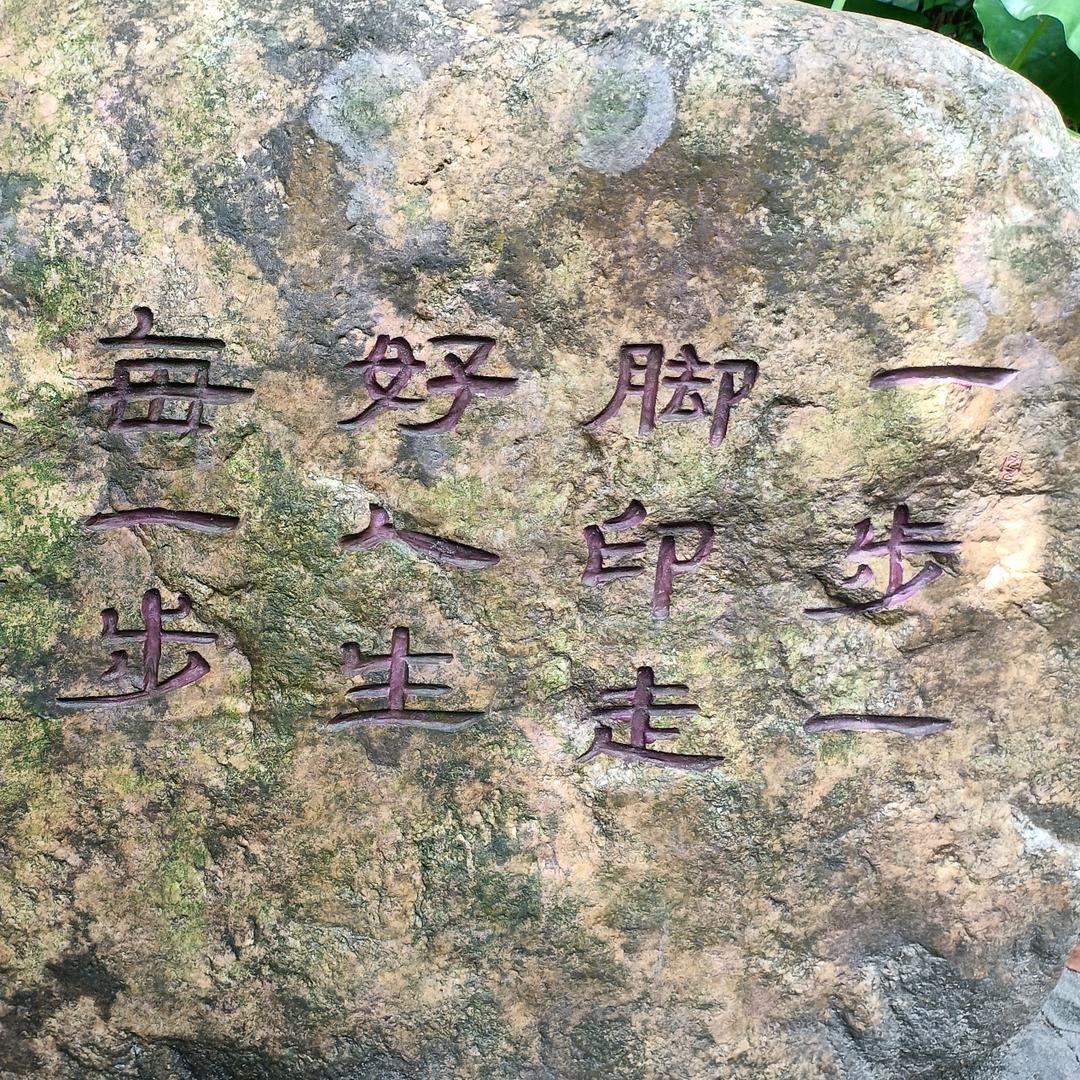 一步一
脚印走
好人生
每一步